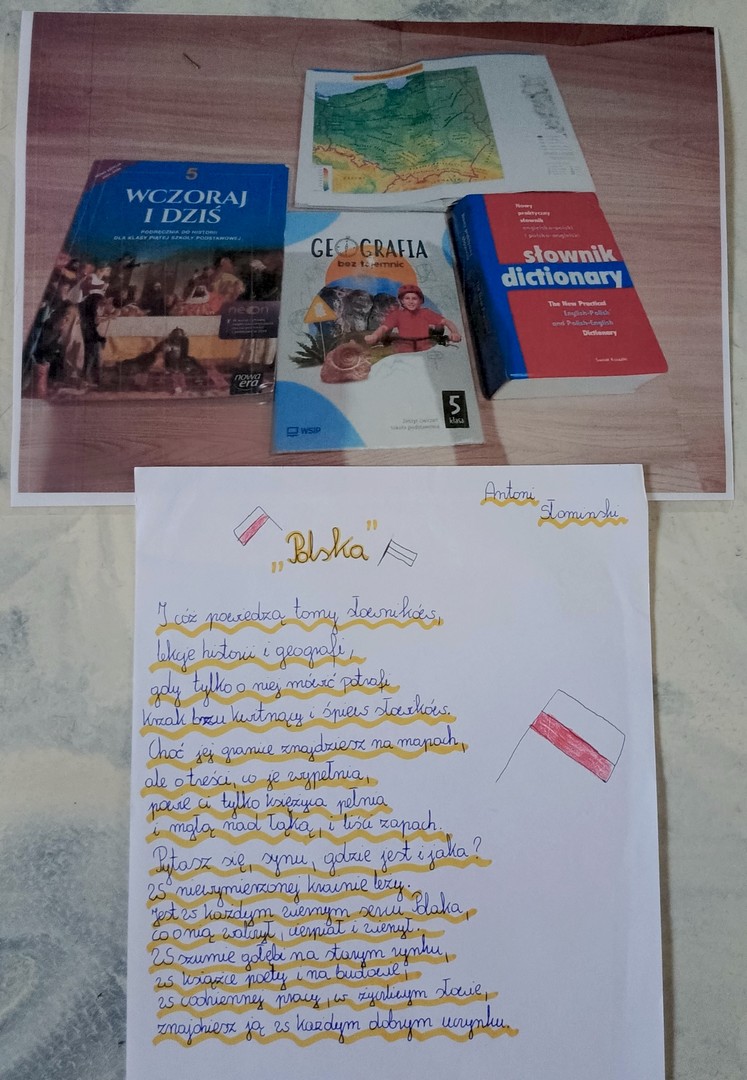 5
WCZORAJ
I DZIŚ
PODRĘCZNIK DO HISTORII
DLA KLASY PIĄTEJ SZKOŁY PODSTAWOWEJ
neon
nowa
era
GEOGRAFIA
bez tajemnic
WSiP
Zeszyt ćwiczeń
Szkoła podstawowa
5
klasa
Nowy
praktyczny
słownik
angielsko-polski
i polsko-angielski
słownik
dictionary
The New Practical
English-Polish
and Polish-English
Dictionary
Świat Książki
Antoni
Słomiński
„Polska”
I cóż powiedzą tomy słowników,
lekcje historii i geografi,
gdy tylko o niej mówić potrafi
krzak bzu kwitnący i śpiew słowików.
Choć jej granice znajdziesz na mapach,
ale o treści, co je wypełnia,
powie ci tylko księżyca pełnia
i mgłą nad łąką, i liści zapach.
Pytasz się, synu, gdzie jest i jaka?
W niewymierzonej krainie leży.
Jest w każdym wiernym sercu Polaka,
co o nią walczył, cierpiał i wierzył.
W szumie gołębi na starym rynku,
w książce poety i na budowie,
w codziennej pracy, w życzliwym słowie,
znajdziesz ją w każdym dobrym uczynku.